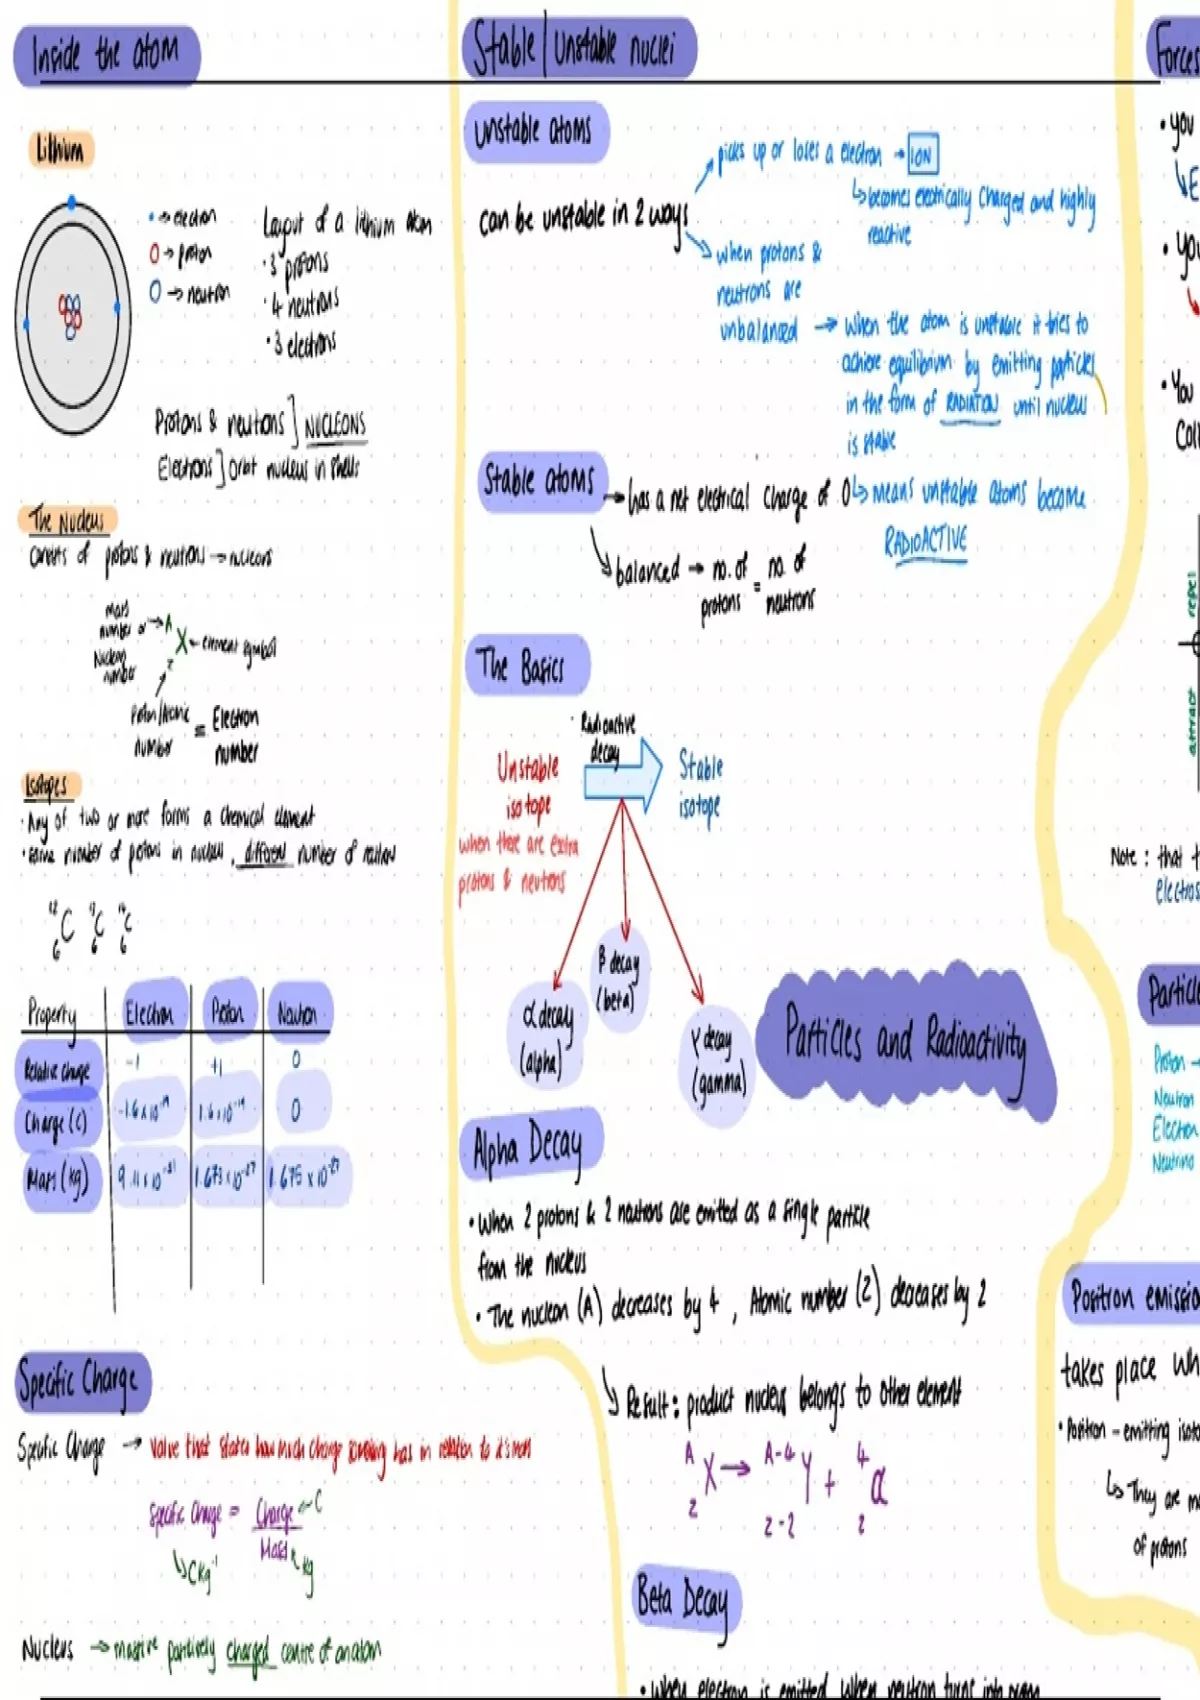 Inside the atom
Lithium
• → electron
O → proton
O → neutron
Layout of a lithium atom
• 3 protons
• 4 neutrons
• 3 electrons
Protons & neutrons ] NUCLEONS
Electrons ] orbit nucleus in shells
The Nucleus
consists of protons & neutrons → nucleons
mass
number or → A
Nucleon
number
X ← element symbol
Z
Proton/Atomic
number
= Electron
number
Isotopes
• Any of two or more forms a chemical element
• same number of protons in nucleus, different number of neutrons
12 6 C 13 6 C 14 6 C
Property Electron Proton Neutron
Relative charge -1 +1 0
Charge (C) -1.6 x 10⁻¹⁹ 1.6 x 10⁻¹⁹ 0
Mass (kg) 9.11 x 10⁻³¹ 1.673 x 10⁻²⁷ 1.675 x 10⁻²⁷
Specific Charge
Specific Charge → value that states how much charge something has in relation to it's mass
Specific Charge = Charge ← C
Mass ← kg
↳ Ckg⁻¹
Nucleus → massive positively charged centre of an atom
Stable/Unstable nuclei
Unstable atoms
can be unstable in 2 ways
picks up or loses a electron → ION
↳ becomes electrically charged and highly
reactive
when protons &
neutrons are
unbalanced → When the atom is unstable it tries to
achieve equilibrium by emitting particles
in the form of RADIATION until nucleus
is stable
↳ means unstable atoms become
RADIOACTIVE
Stable atoms → has a net electrical charge of 0
↳ balanced → no. of = no. of
protons neutrons
The Basics
Radioactive
decay
Unstable
isotope
when there are extra
protons & neutrons
Stable
isotope
α decay
(alpha)
β decay
(beta)
γ decay
(gamma)
Particles and Radioactivity
Alpha Decay
• When 2 protons & 2 neutrons are emitted as a single particle
from the nucleus
• The nucleon (A) decreases by 4, Atomic number (Z) decreases by 2
↳ Result: product nucleus belongs to other element
A Z X → A-4 Z-2 Y + 4 2 α
Beta Decay
• When electron is emitted when neutron turns into
Forces
• you
↳ E
• you
• You
repel
attract
Note: that
electros
Particle
Proton →
Neutron
Electron
Neutrino
Positron emission
takes place wh
• Positron - emitting isoto
↳ They are
of protons